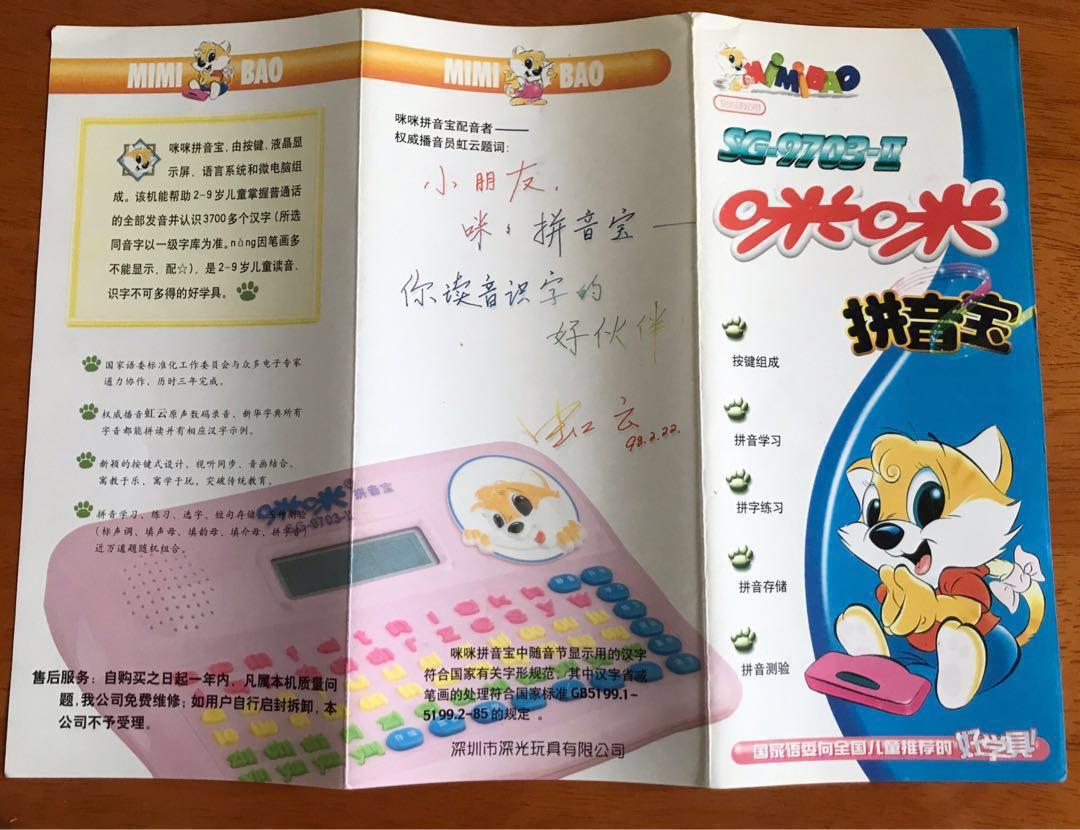 MIMI BAO
咪咪拼音宝,由按键、液晶显
示屏、语言系统和微电脑组
成。该机能帮助2-9岁儿童掌握普通话
的全部发音并认识3700多个汉字(所选
同音字以一级字库为准。nàng因笔画多
不能显示,配☆),是2-9岁儿童读音、
识字不可多得的好学具。
国家语委标准化工作委员会与众多电子专家
通力协作,历时三年完成。
权威播音虹云原声数码录音,新华字典所有
字音都能拼读并有相应汉字示例。
新颖的按键式设计,视听同步、音画结合,
寓教于乐、寓学于玩,突破传统教育。
拼音学习、练习、选字、短句存储、
(标声调、填声母、填韵母、填介母、拼字音)
近万道题随机组合。
售后服务:自购买之日起一年内,凡属本机质量问
题,我公司免费维修;如用户自行启封拆卸,本
公司不予受理。
MIMI BAO
咪咪拼音宝配音者——
权威播音员虹云题词:
小朋友,
咪々拼音宝—
你读音识字的
好伙伴
虹云
98.2.22.
咪咪 拼音宝
SG-9703-II
咪咪拼音宝中随音节显示用的汉字
符合国家有关字形规范,其中汉字省减
笔画的处理符合国家标准GB5199.1-
5199.2-85的规定。
深圳市深光玩具有限公司
MIMIBAO
SG-9703-II
咪咪
拼音宝
按键组成
拼音学习
拼字练习
拼音存储
拼音测验
国家语委向全国儿童推荐的好学具!